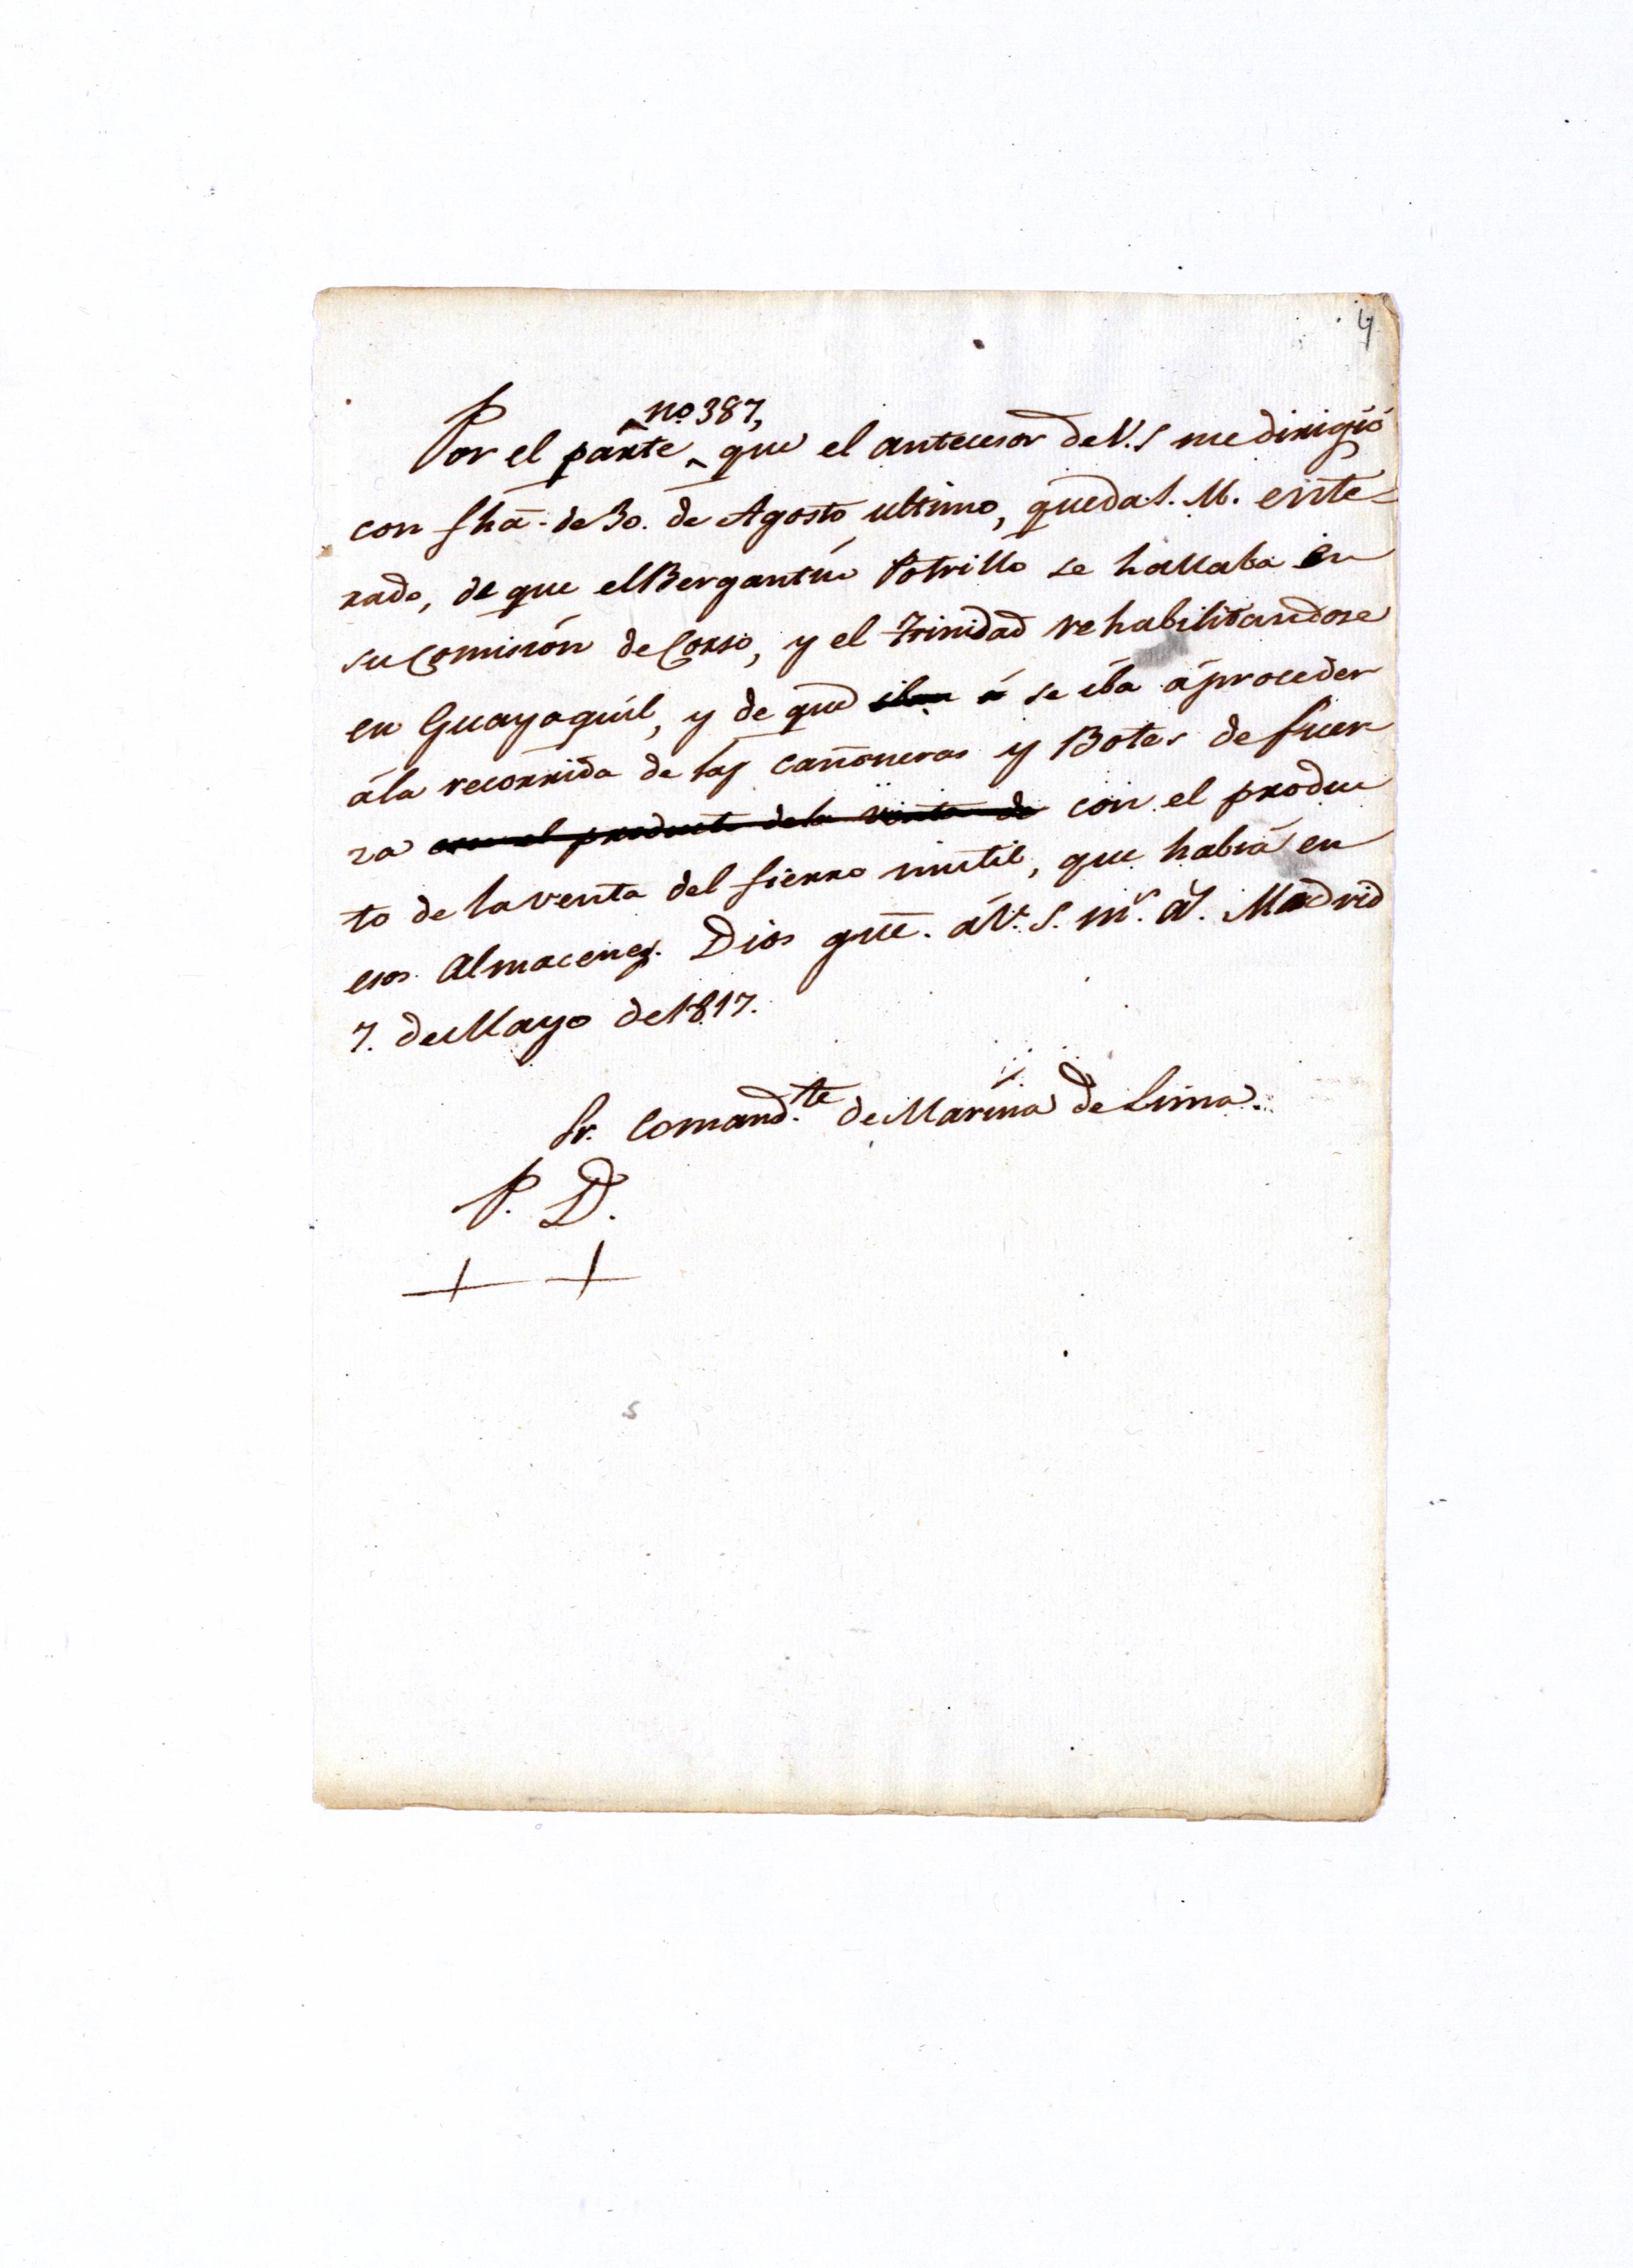 4
nº 387,
Por el parte que el antecesor de V.S me dirigió
con fhã. de 30. de Agosto ultimo, queda S. M. ente-
rado, de que el Bergantin Potrillo se hallaba en
su Comisión de Corso, y el Trinidad rehabilitandose
en Guayaquil, y de que iban á se iba á proceder
á la recorrida de las cañoneras y Botes de fuer
za con el producto de la venta de con el produc
to de la venta del fierro inutil, que habia en
esos Almacenes. Dios gũe. á V. S. mˢ. aˢ. Madrid
7. de Mayo de 1817.
Sr. Comand.te de Marina de Lima.
P. D.
5